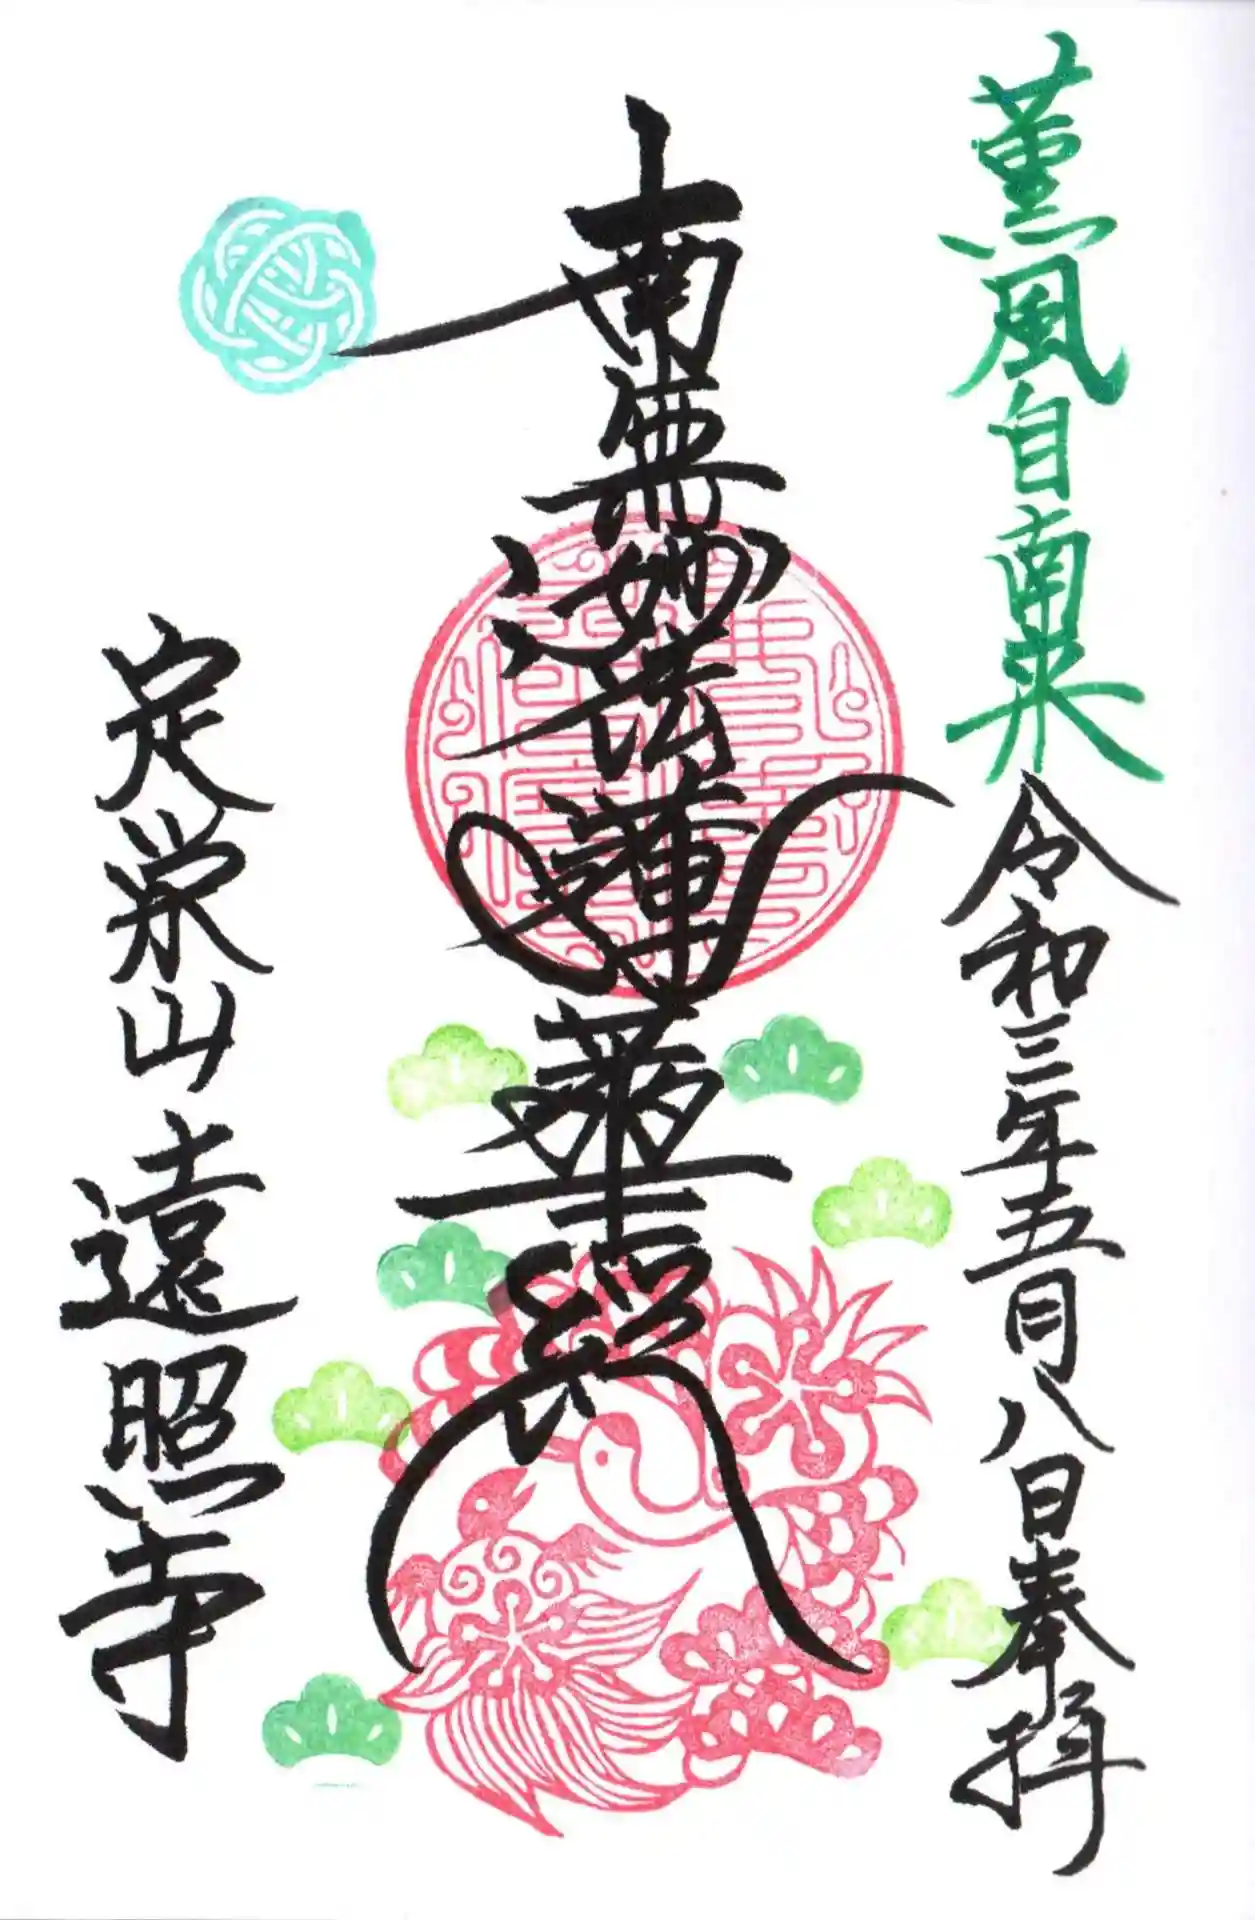 薫風自南来
令和三年五月八日奉拝
南無妙法蓮華経
定栄山 遠照寺